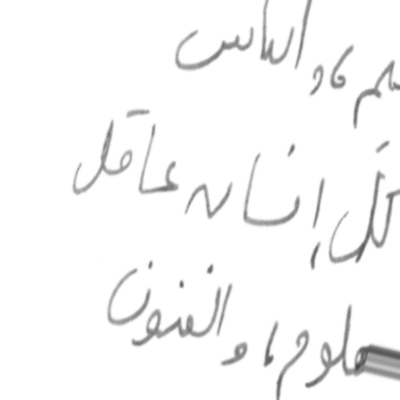 ، والناس
كل إنسان عاقل
علوم، والفنون